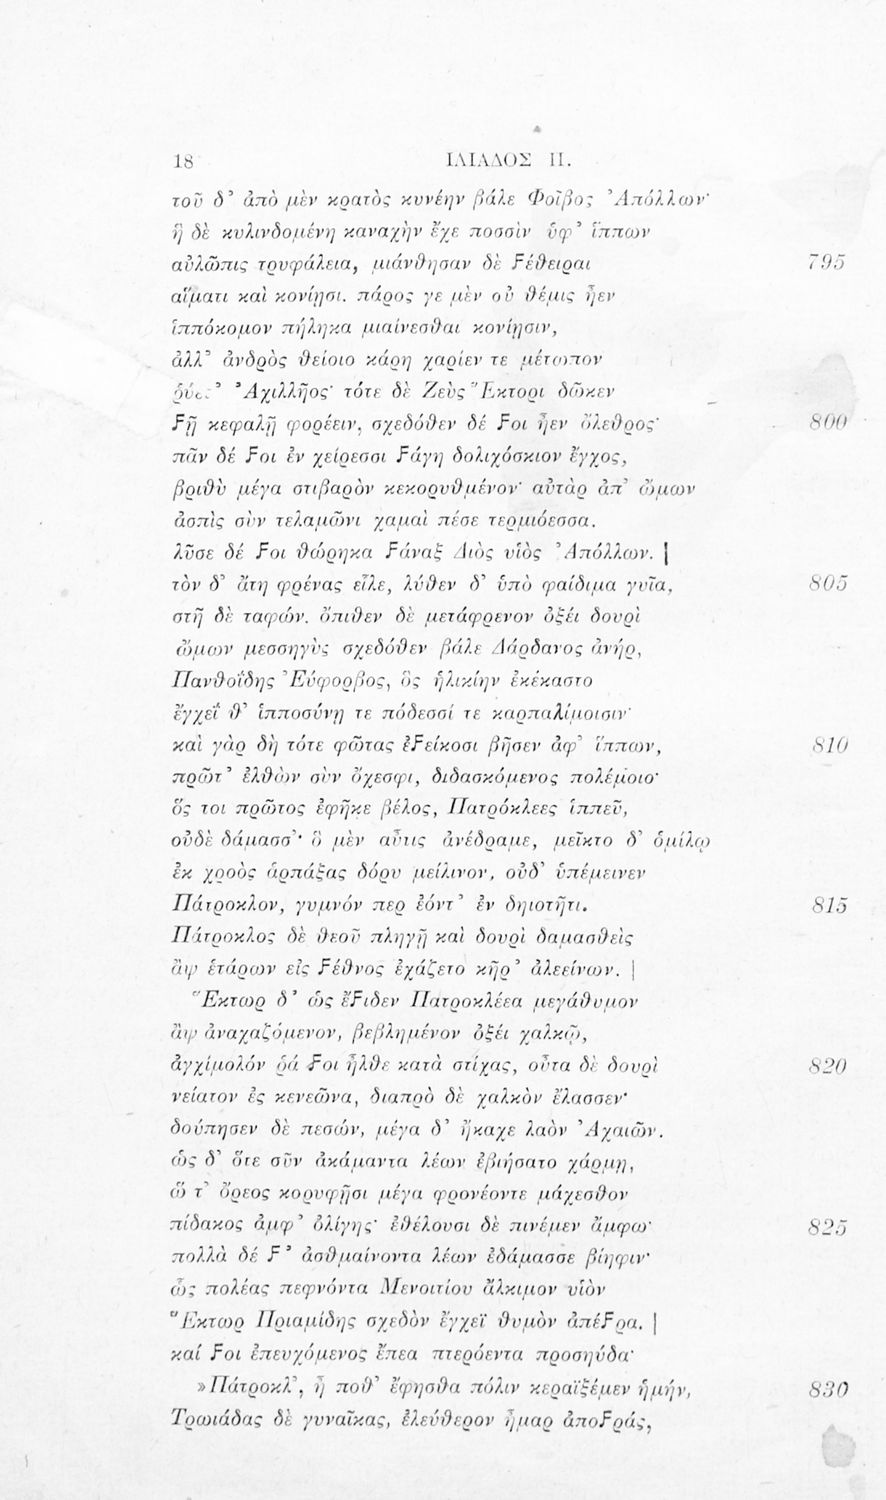 18 ΙΛΙΑΔΟΣ Π.
τοῦ δ’ ἀπὸ μὲν κρατὸς κυνέην βάλε Φοῖβος Ἀπόλλων·
ἣ δὲ κυλινδομένη καναχὴν ἔχε ποσσὶν ὑφ’ ἵππων
αὐλῶπις τρυφάλεια, μιάνθησαν δὲ Ϝέθειραι 795
αἵματι καὶ κονίῃσι. πάρος γε μὲν οὐ θέμις ἦεν
ἱππόκομον πήληκα μιαίνεσθαι κονίῃσιν,
ἀλλ’ ἀνδρὸς θείοιο κάρη χαρίεν τε μέτωπον
Ἀχιλλῆος· τότε δὲ Ζεὺς Ἕκτορι δῶκεν
Ϝῇ κεφαλῇ φορέειν, σχεδόθεν δέ Ϝοι ἦεν ὄλεθρος· 800
πᾶν δέ Ϝοι ἐν χείρεσσι Ϝάγη δολιχόσκιον ἔγχος,
βριθὺ μέγα στιβαρὸν κεκορυθμένον· αὐτὰρ ἀπ’ ὤμων
ἀσπὶς σὺν τελαμῶνι χαμαὶ πέσε τερμιόεσσα.
λῦσε δέ Ϝοι θώρηκα Ϝάναξ Διὸς υἱὸς Ἀπόλλων. |
τὸν δ’ ἄτη φρένας εἷλε, λύθεν δ’ ὑπὸ φαίδιμα γυῖα, 805
στῆ δὲ ταφών. ὄπιθεν δὲ μετάφρενον ὀξέι δουρὶ
ὤμων μεσσηγὺς σχεδόθεν βάλε Δάρδανος ἀνήρ,
Πανθοΐδης Εὔφορβος, ὃς ἡλικίην ἐκέκαστο
ἔγχεΐ θ’ ἱπποσύνῃ τε πόδεσσί τε καρπαλίμοισιν·
καὶ γὰρ δὴ τότε φῶτας ἐϜείκοσι βῆσεν ἀφ’ ἵππων, 810
πρῶτ’ ἐλθὼν σὺν ὄχεσφι, διδασκόμενος πολέμοιο·
ὅς τοι πρῶτος ἐφῆκε βέλος, Πατρόκλεες ἱππεῦ,
οὐδὲ δάμασσ’· ὃ μὲν αὖτις ἀνέδραμε, μεῖκτο δ’ ὁμίλῳ
ἐκ χροὸς ἁρπάξας δόρυ μείλινον, οὐδ’ ὑπέμεινεν
Πάτροκλον, γυμνόν περ ἐόντ’ ἐν δηιοτῆτι. 815
Πάτροκλος δὲ θεοῦ πληγῇ καὶ δουρὶ δαμασθεὶς
ἂψ ἑτάρων εἰς Ϝέθνος ἐχάζετο κῆρ’ ἀλεείνων. |
Ἕκτωρ δ’ ὡς ἔϜιδεν Πατροκλέεα μεγάθυμον
ἂψ ἀναχαζόμενον, βεβλημένον ὀξέι χαλκῷ,
ἀγχίμολόν ῥά Ϝοι ἦλθε κατὰ στίχας, οὖτα δὲ δουρὶ 820
νείατον ἐς κενεῶνα, διαπρὸ δὲ χαλκὸν ἔλασσεν·
δούπησεν δὲ πεσών, μέγα δ’ ἤκαχε λαὸν Ἀχαιῶν.
ὡς δ’ ὅτε σῦν ἀκάμαντα λέων ἐβιήσατο χάρμῃ,
ὥ τ’ ὄρεος κορυφῇσι μέγα φρονέοντε μάχεσθον
πίδακος ἀμφ’ ὀλίγης· ἐθέλουσι δὲ πινέμεν ἄμφω· 825
πολλὰ δέ Ϝ’ ἀσθμαίνοντα λέων ἐδάμασσε βίηφιν·
ὣς πολέας πεφνόντα Μενοιτίου ἄλκιμον υἱὸν
Ἕκτωρ Πριαμίδης σχεδὸν ἔγχεϊ θυμὸν ἀπέϜρα. |
καί Ϝοι ἐπευχόμενος ἔπεα πτερόεντα προσηύδα·
»Πάτροκλ’, ἦ ποθ’ ἔφησθα πόλιν κεραϊξέμεν ἡμήν, 830
Τρωιάδας δὲ γυναῖκας, ἐλεύθερον ἦμαρ ἀποϜράς,